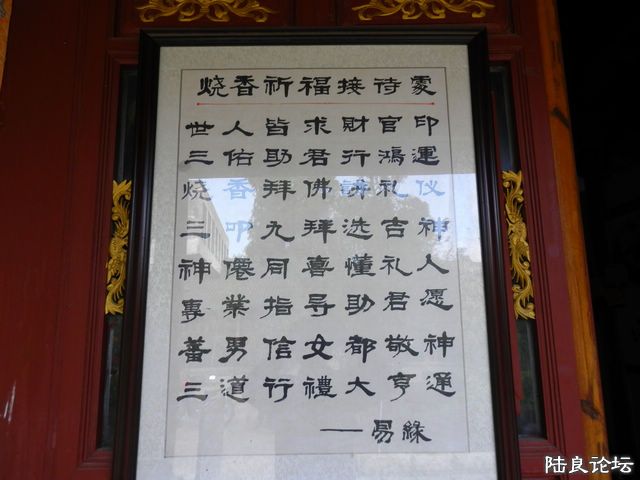 烧香祈福接待處
世人皆求財官印
三佑助君行鴻運
烧香拜佛講礼仪
三叩九拜选吉神
神僊同喜懂礼人
專業指导助君愿
善男信女都敬神
三道行禮大亨通
——易緣
陆良论坛